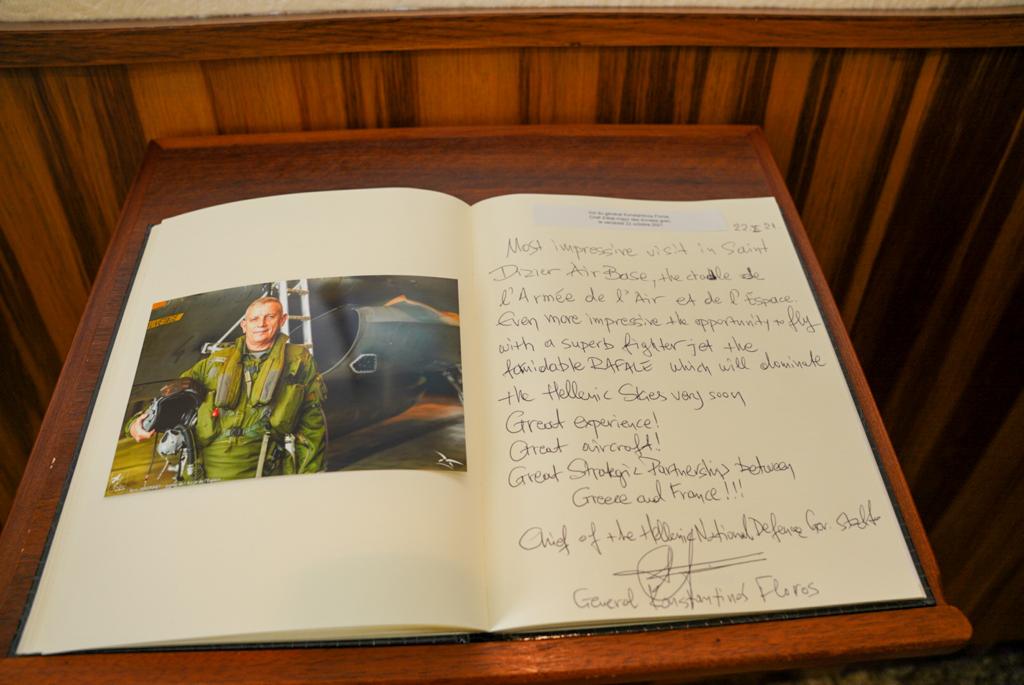 Vol du général Konstantinos Floros
Chef d'état-major des Armées grec
le vendredi 22 octobre 2021
22 X 21
Most impressive visit in Saint
Dizier Air Base, the cradle de
l'Armée de l'Air et de l'Espace.
Even more impressive the opportunity to fly
with a superb fighter jet the
formidable RAFALE which will dominate
the Hellenic Skies very soon
Great experience!
Great aircraft!
Great Strategic Partnership between
Greece and France!!!
Chief of the Hellenic National Defence Gen. Staff
General Konstantinos Floros